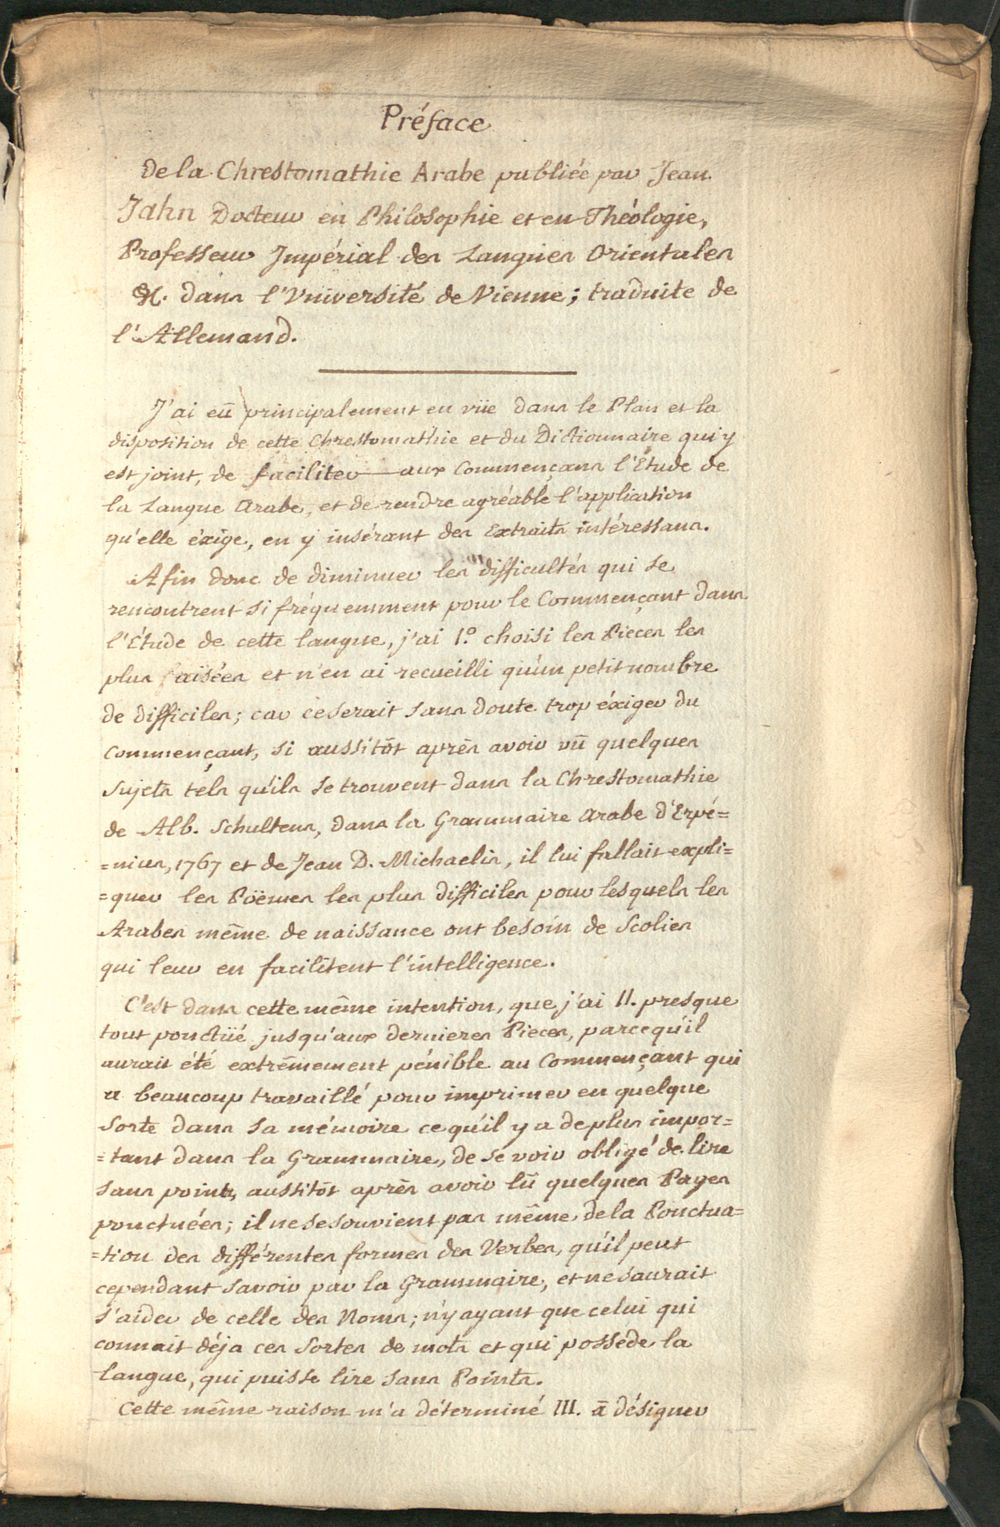 Préface
de la Chrestomathie Arabe publiée par Jean
Jahn Docteur en Philosophie et en Théologie,
Professeur Impérial des Langues Orientales
&c. dans l'Université de Vienne; traduite de
l'Allemand.
J'ai eû principalement en vüe dans le Plan et la
disposition de cette Chrestomathie et du Dictionnaire qui y
est joint, de faciliter aux Commençans l'Étude de
la Langue Arabe, et de rendre agréable l'application
qu'elle éxige, en y insérant des Extraits intéressans.
Afin donc de diminuer les difficultés qui se
rencontrent si fréquemment pour le Commençant dans
l'Étude de cette langue, j'ai 1.º choisi les Pieces les
plus aisées et n'en ai recueilli qu'un petit nombre
de difficiles; car ce serait sans doute trop éxiger du
Commençant, si aussitôt après avoir vû quelques
sujets tels qu'ils se trouvent dans la Chrestomathie
de Alb. Schultens, dans la Grammaire Arabe d'Erpé=
=nius, 1767 et de Jean D. Michaelis, il lui fallait expli=
=quer les Poëmes les plus difficiles pour lesquels les
Arabes même de naissance ont besoin de Scolies
qui leur en facilitent l'intelligence.
C'est dans cette même intention, que j'ai II. presque
tout ponctüé jusqu'aux dernieres Pieces, parcequ'il
aurait été extrêmement pénible au Commençant qui
a beaucoup travaillé pour imprimer en quelque
sorte dans sa mémoire ce qu'il y a de plus impor=
=tant dans la Grammaire, de se voir obligé de lire
sans points, aussitôt après avoir lû quelques Pages
ponctuées; il ne se souvient pas même de la Ponctua=
=tion des différentes formes des Verbes, qu'il peut
cependant savoir par la Grammaire, et ne saurait
s'aider de celle des Noms; n'y ayant que celui qui
connait déja ces sortes de mots et qui posséde la
langue, qui puisse lire sans Points.
Cette même raison m'a déterminé III. à désigner